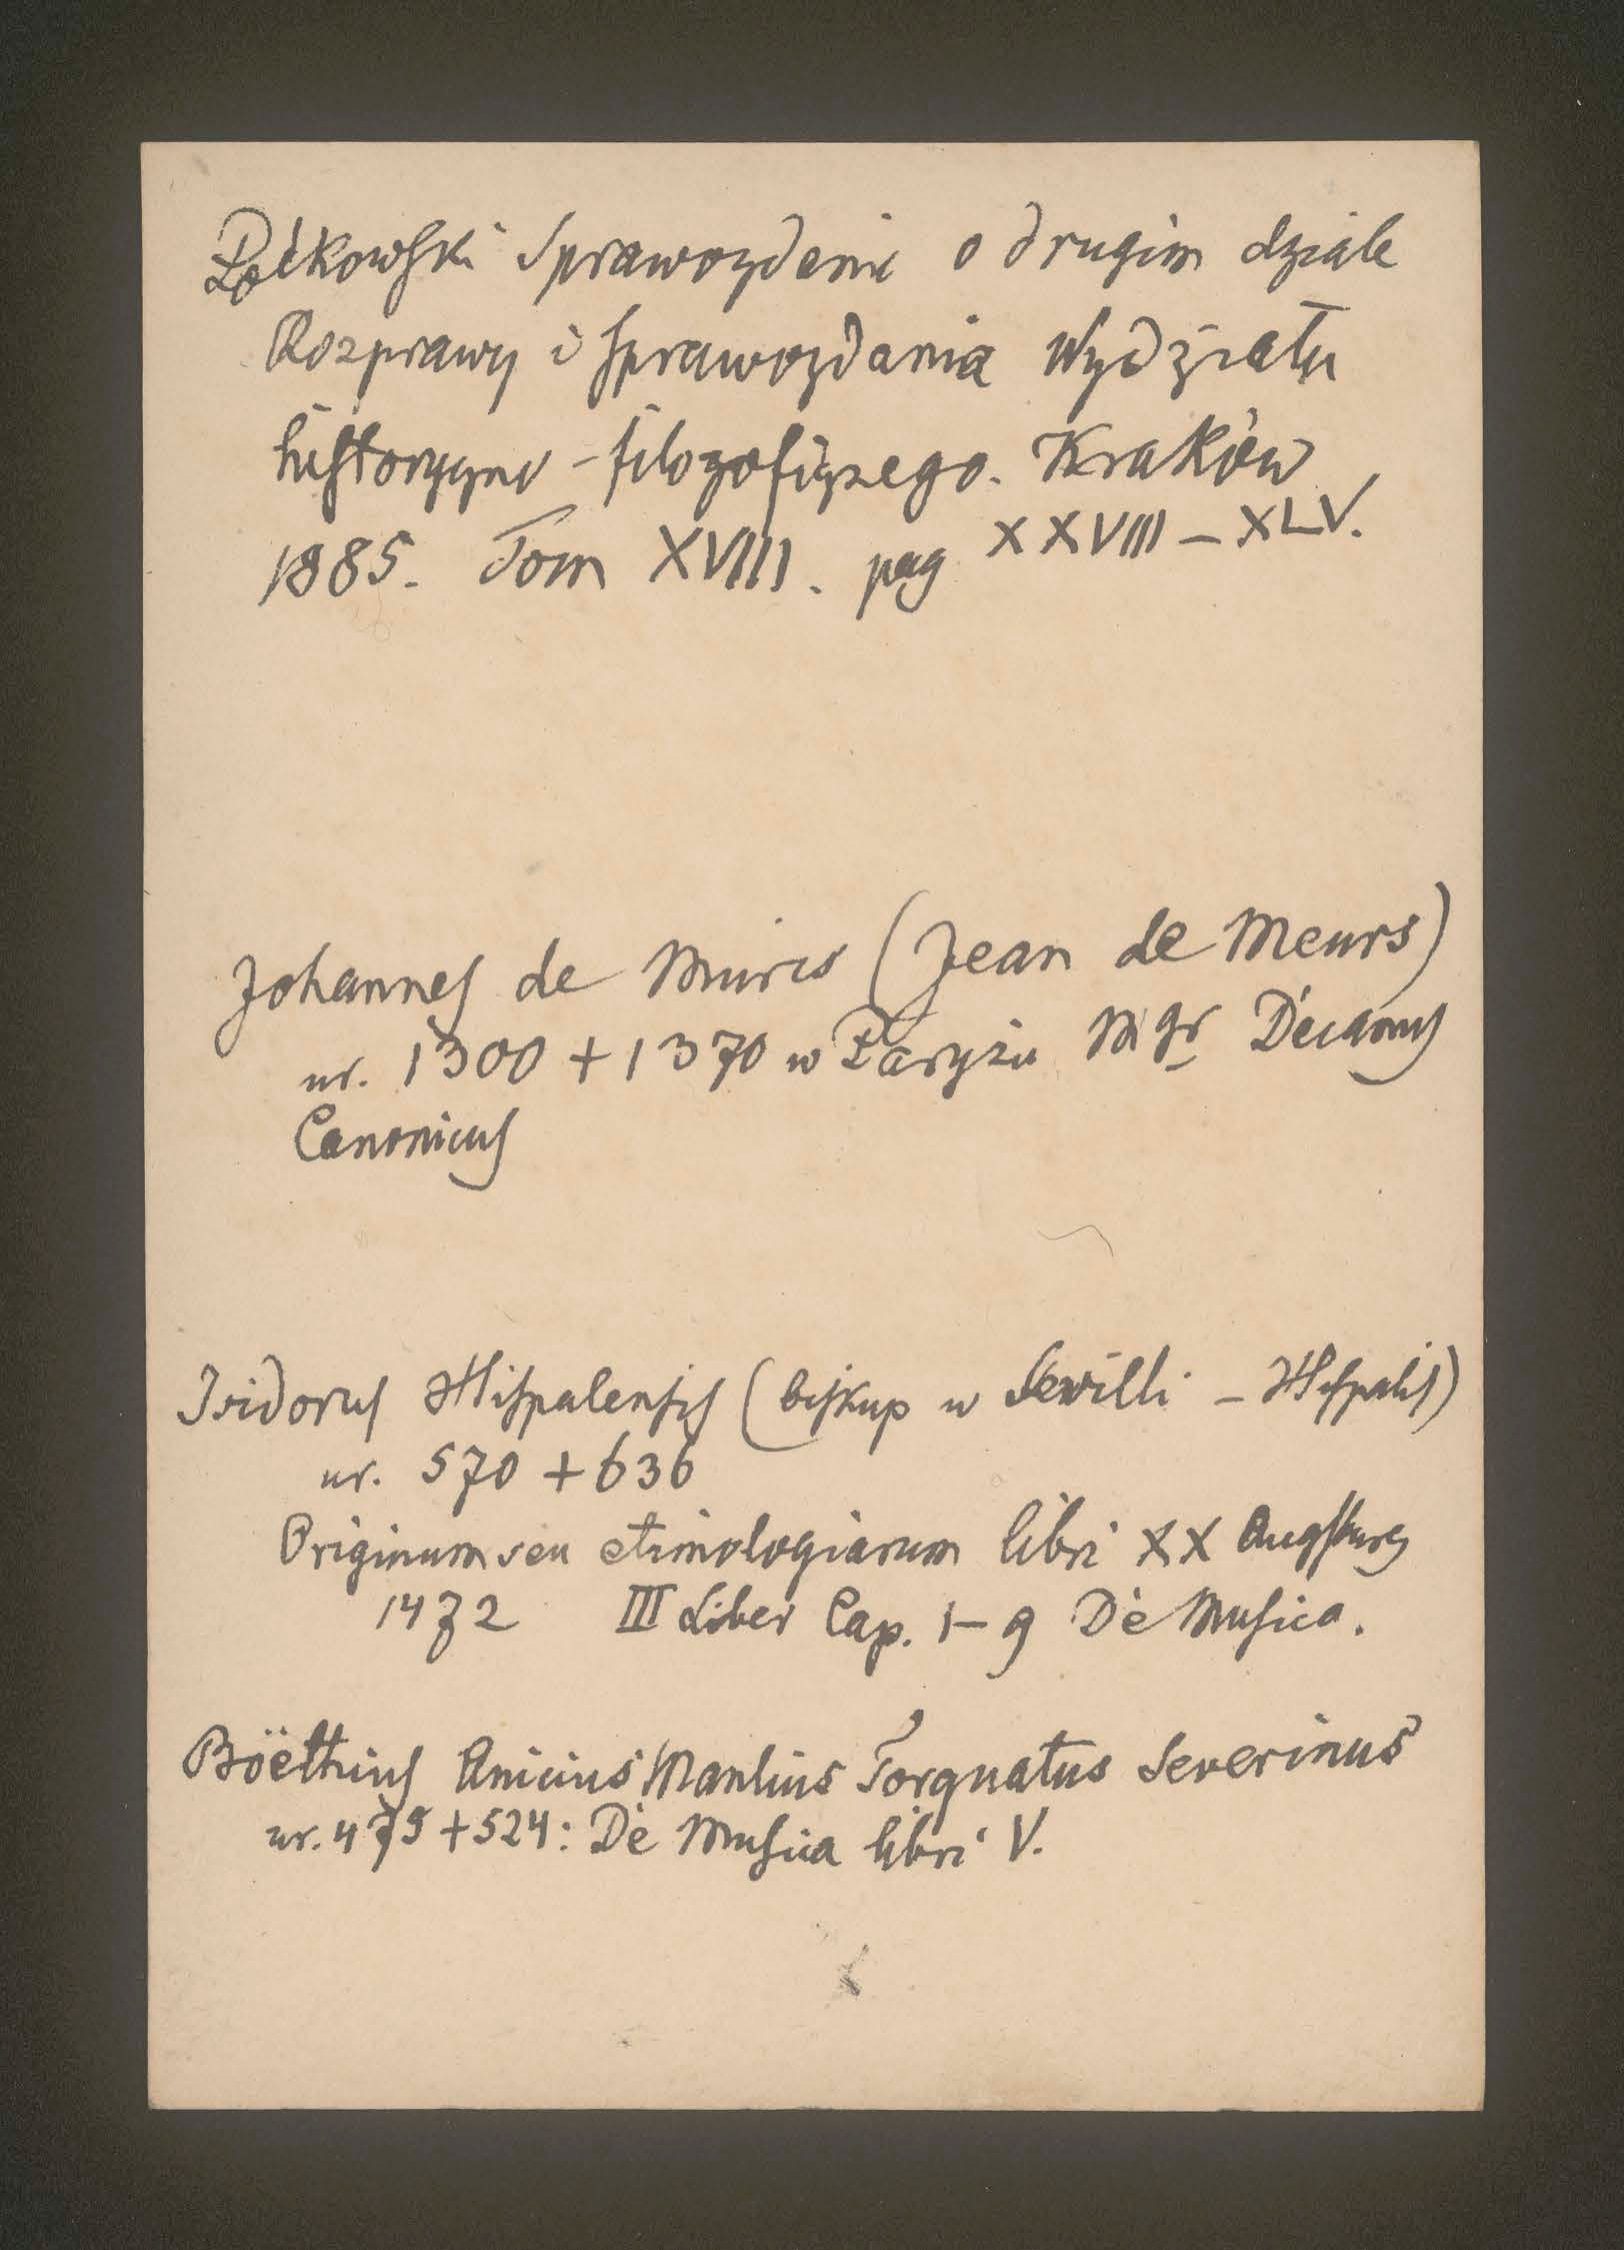 Polkowski Sprawozdanie o drugim dziale
Rozprawy i Sprawozdania Wydziału
historyczno-filozoficznego. Kraków
1885. Tom XVIII. pag XXVIII-XLV.
Johannes de Muris (Jean de Meurs)
ur. 1300 + 1370 w Paryżu Mgr Decanus
Canonicus
Isidorus Hispalensis (biskup w Sewilli - Hispalis)
ur. 570 + 636
Originum seu etimologiarum libri XX Augsburg
1472 III Liber Cap. 1-9 De Musica.
Böethius Anicius Manlius Torquatus Severinus
ur. 475 + 524: De Musica libri V.